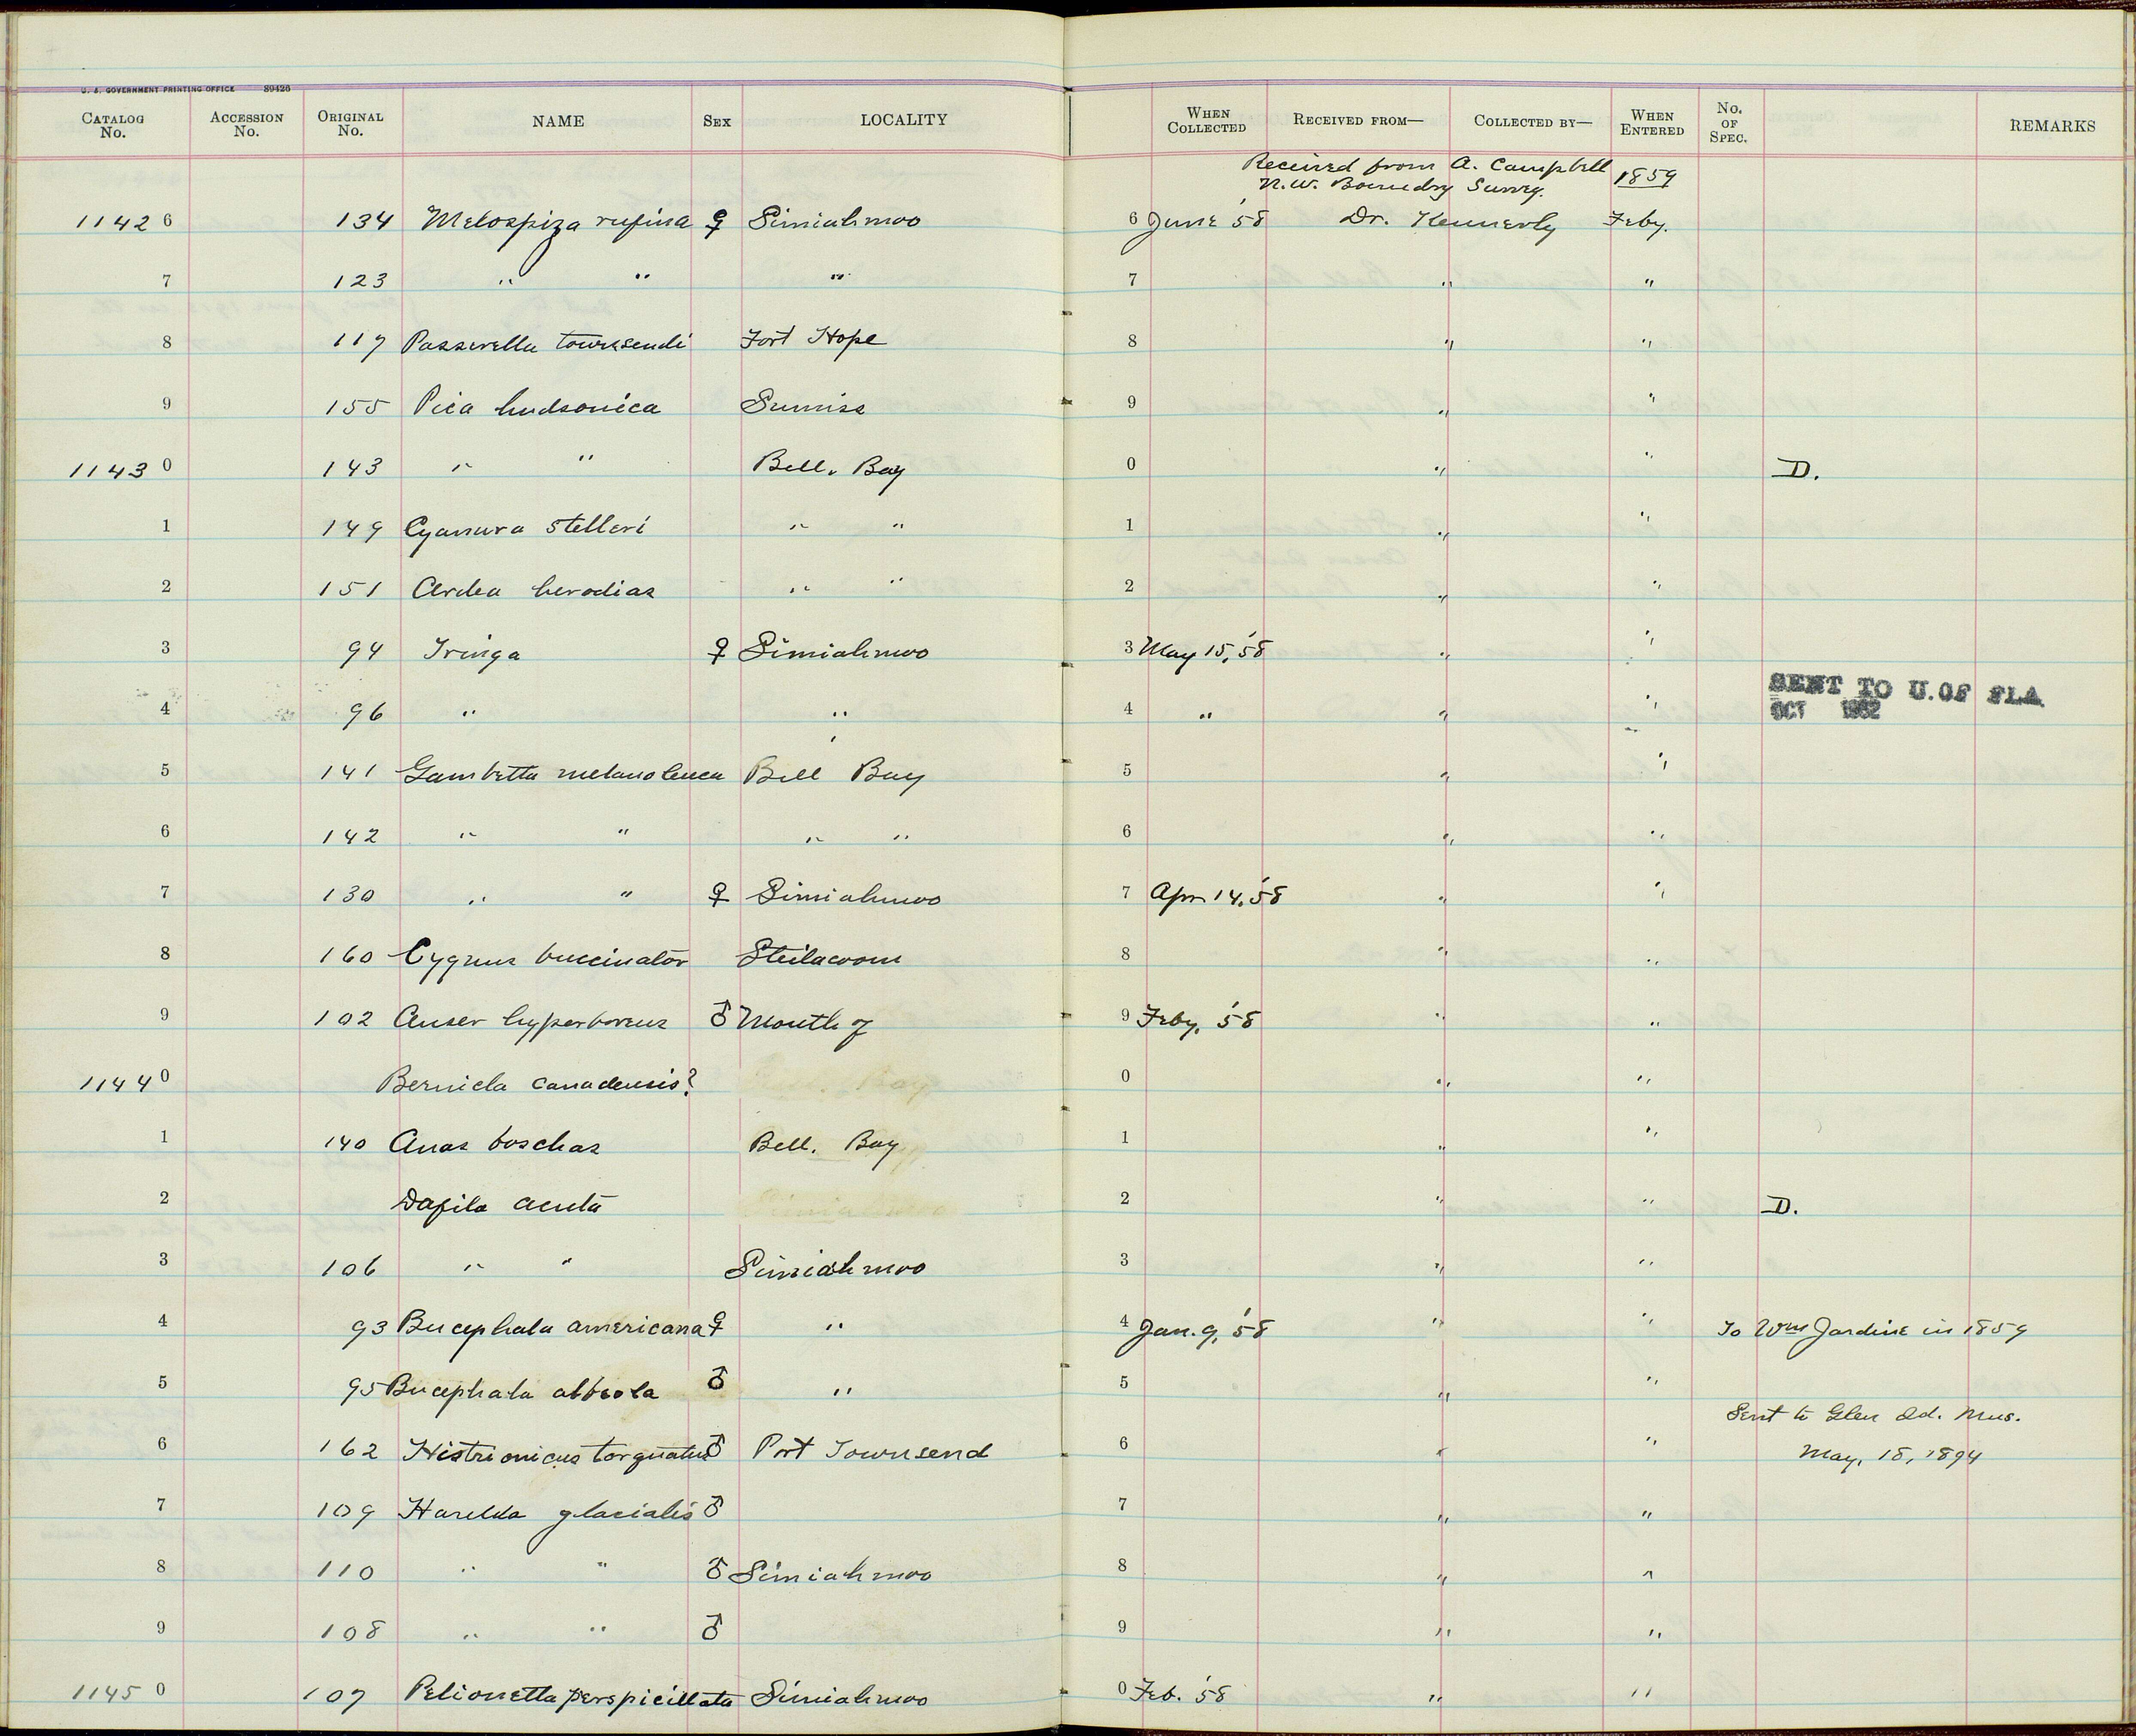 U. S. GOVERNMENT PRINTING OFFICE 89426
CATALOG No. ACCESSION No. ORIGINAL No. NAME SEX LOCALITY WHEN COLLECTED RECEIVED FROM— COLLECTED BY— WHEN ENTERED No. OF SPEC. REMARKS
Received from A. Campbell 1859
N.W. Boundry Survey.
1142 6 134 Melospiza rufina ♀ Simiahmoo 6 June '58 Dr. Kennerly Feby.
7 123 " " " 7 " "
8 117 Passerella townsendi Fort Hope 8 " "
9 155 Pica hudsonica Sumiss 9 " "
1143 0 143 " " Bell. Bay 0 " " D.
1 149 Cyanura stelleri " " 1 " "
2 151 Ardea herodias " " 2 " "
3 94 Tringa ♀ Simiahmoo 3 May 15, '58 " "
4 96 " " 4 " " " SENT TO U. OF FLA
OCT 1962
5 141 Gambetta melanoleuca Bell Bay 5 " "
6 142 " " " " 6 " "
7 130 " " ♀ Simiahmoo 7 Apr. 14, '58 " "
8 160 Cygnus buccinator Steilacoom 8 " "
9 102 Anser hyperboreus ♂ Mouth of 9 Feby. '58 " "
1144 0 Bernicla canadensis? 0 " "
1 140 Anas boschas Bell. Bay 1 " "
2 Dafila acuta 2 " " D.
3 106 " " Simiahmoo 3 " "
4 93 Bucephala americana ♀ " 4 Jan. 9, '58 " " To Wm Jardine in 1859
5 95 Bucephala albeola ♂ " 5 " "
Sent to Glen Id. Mus.
6 162 Histrionicus torquatus ♂ Port Townsend 6 " " May, 18, 1894
7 109 Harelda glacialis ♂ 7 " "
8 110 " " ♂ Simiahmoo 8 " "
9 108 " " ♂ 9 " "
1145 0 107 Pelionetta perspicillata Simiahmoo 0 Feb. '58 " "